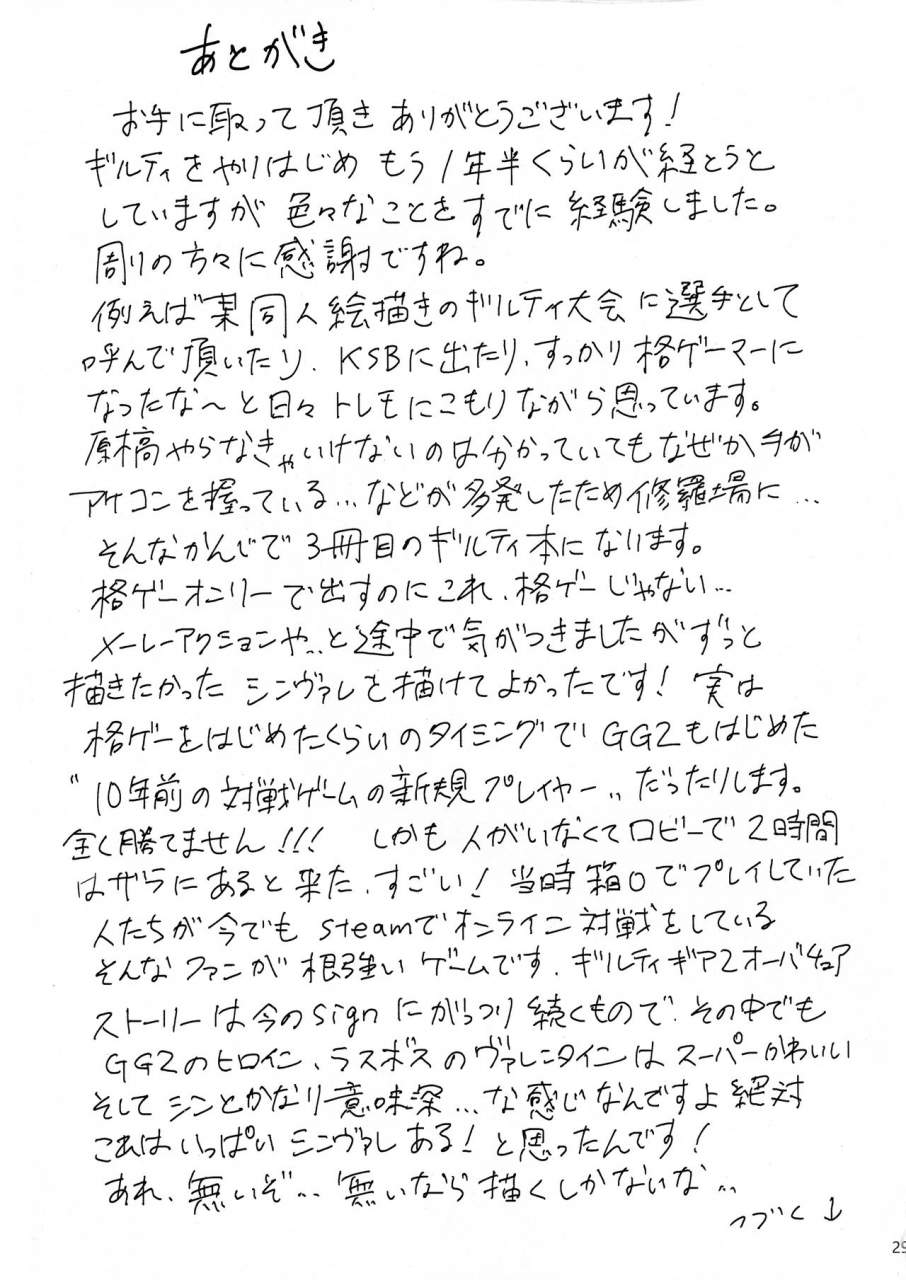 あとがき
お手に取って頂きありがとうございます!
ギルティをやりはじめ もう1年半くらいが経とうと
していますが 色々なことをすでに経験しました。
周りの方々に感謝ですね。
例えば某同人絵描きのギルティ大会に選手として
呼んで頂いたり、KSBに出たり、すっかり格ゲーマーに
なったな〜と日々トレモにこもりながら思っています。
原稿やらなきゃいけないのは分かっていてもなぜか手が
アケコンを握っている…などが多発したため修羅場に…
そんなかんじで3冊目のギルティ本になります。
格ゲーオンリーで出すのにこれ、格ゲーじゃない…
メーレーアクションや…と途中で気がつきましたがずっと
描きたかったシンヴァレを描けてよかったです! 実は
格ゲーをはじめたくらいのタイミングでGG2もはじめた
"10年前の対戦ゲームの新規プレイヤー"だったりします。
全く勝てません!!! しかも人がいなくてロビーで2時間
はザラにあると来た、すごい! 当時箱〇でプレイしていた
人たちが今でもsteamでオンライン対戦をしている
そんなファンが根強いゲームです、ギルティギア2オーバチュア
ストーリーは今のsignにがっつり続くもので、その中でも
GG2のヒロイン、ラスボスのヴァレンタインはスーパーかわいい
そしてシンとかなり意味深…な感じなんですよ絶対
これはいっぱいシンヴァレある!と思ったんです!
あれ、無いぞ… 無いなら描くしかないな…
つづく↓
29